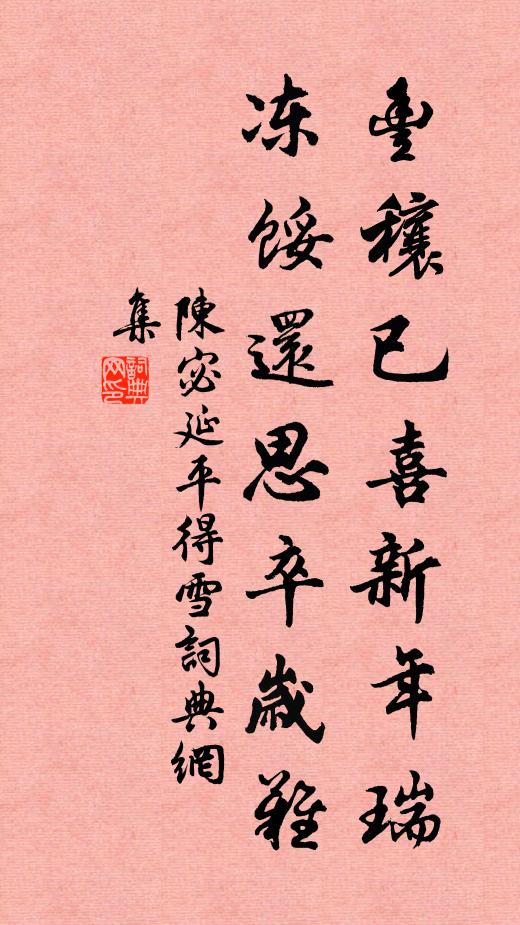 豐穰已喜新年瑞
凍餒還思卒歲難
陳宓延平得雪詞典網
集
詞典
网印